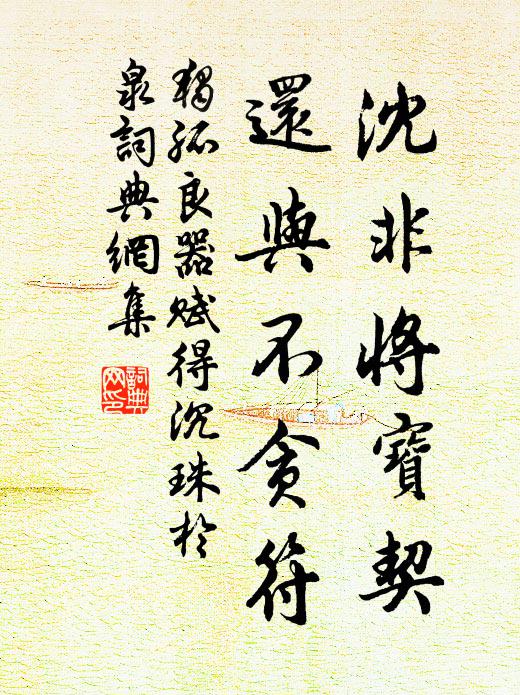 沈非將寶契
還與不貪符
獨孤良器賦得沉珠於
泉詞典網集
詞典
网印